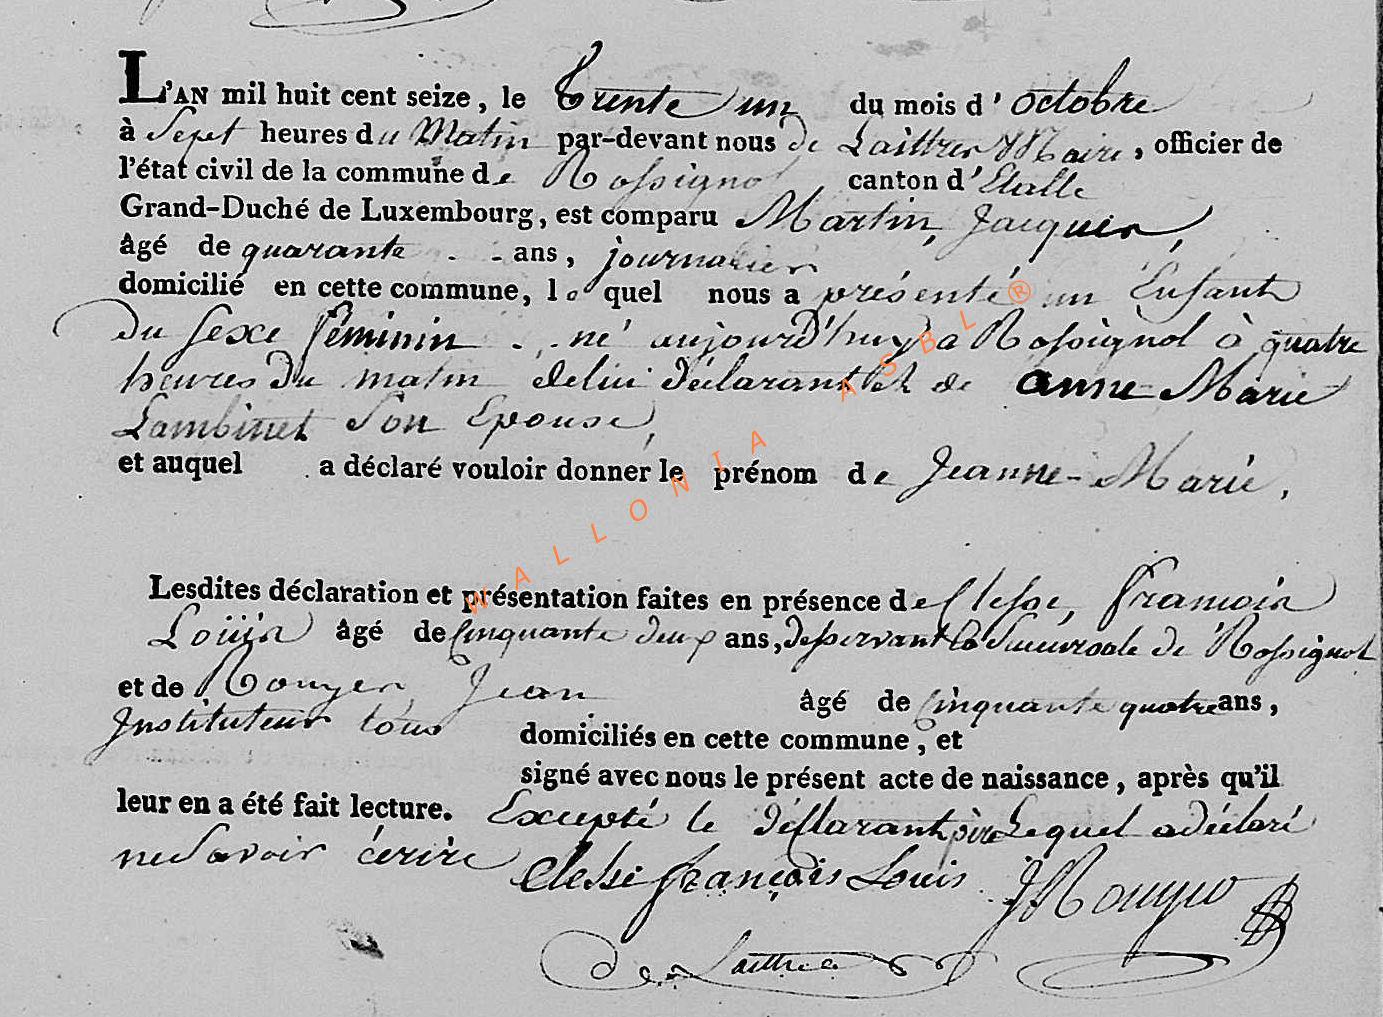 L'AN mil huit cent seize, le trente un du mois d'octobre
à Sept heures du Matin par-devant nous de Laittres Maire, officier de
l'état civil de la commune de Rossignol, canton d'Etalle
Grand-Duché de Luxembourg, est comparu Martin, Jacques,
âgé de quarante ans, journalier
domicilié en cette commune, lequel nous a présenté un Enfant
du sexe féminin né aujourd'huy à Rossignol à quatre
heures du matin de lui déclarant et de anne Marie
Lambinet Son Epouse,
et auquel a déclaré vouloir donner le prénom de Jeanne-Marie,
Lesdites déclaration et présentation faites en présence de Clesse, François
Louis âgé de Cinquante deux ans, desservant la Succursale de Rossignol
et de Rouyer, Jean âgé de Cinquante quatre ans,
Instituteur tous domiciliés en cette commune, et
signé avec nous le présent acte de naissance, après qu'il
leur en a été fait lecture. Excepté le déclarant père Lequel a déclaré
ne Savoir écrire Clesse françois Louis J Rouyer
De Laittre
WALLONIA ASBL®